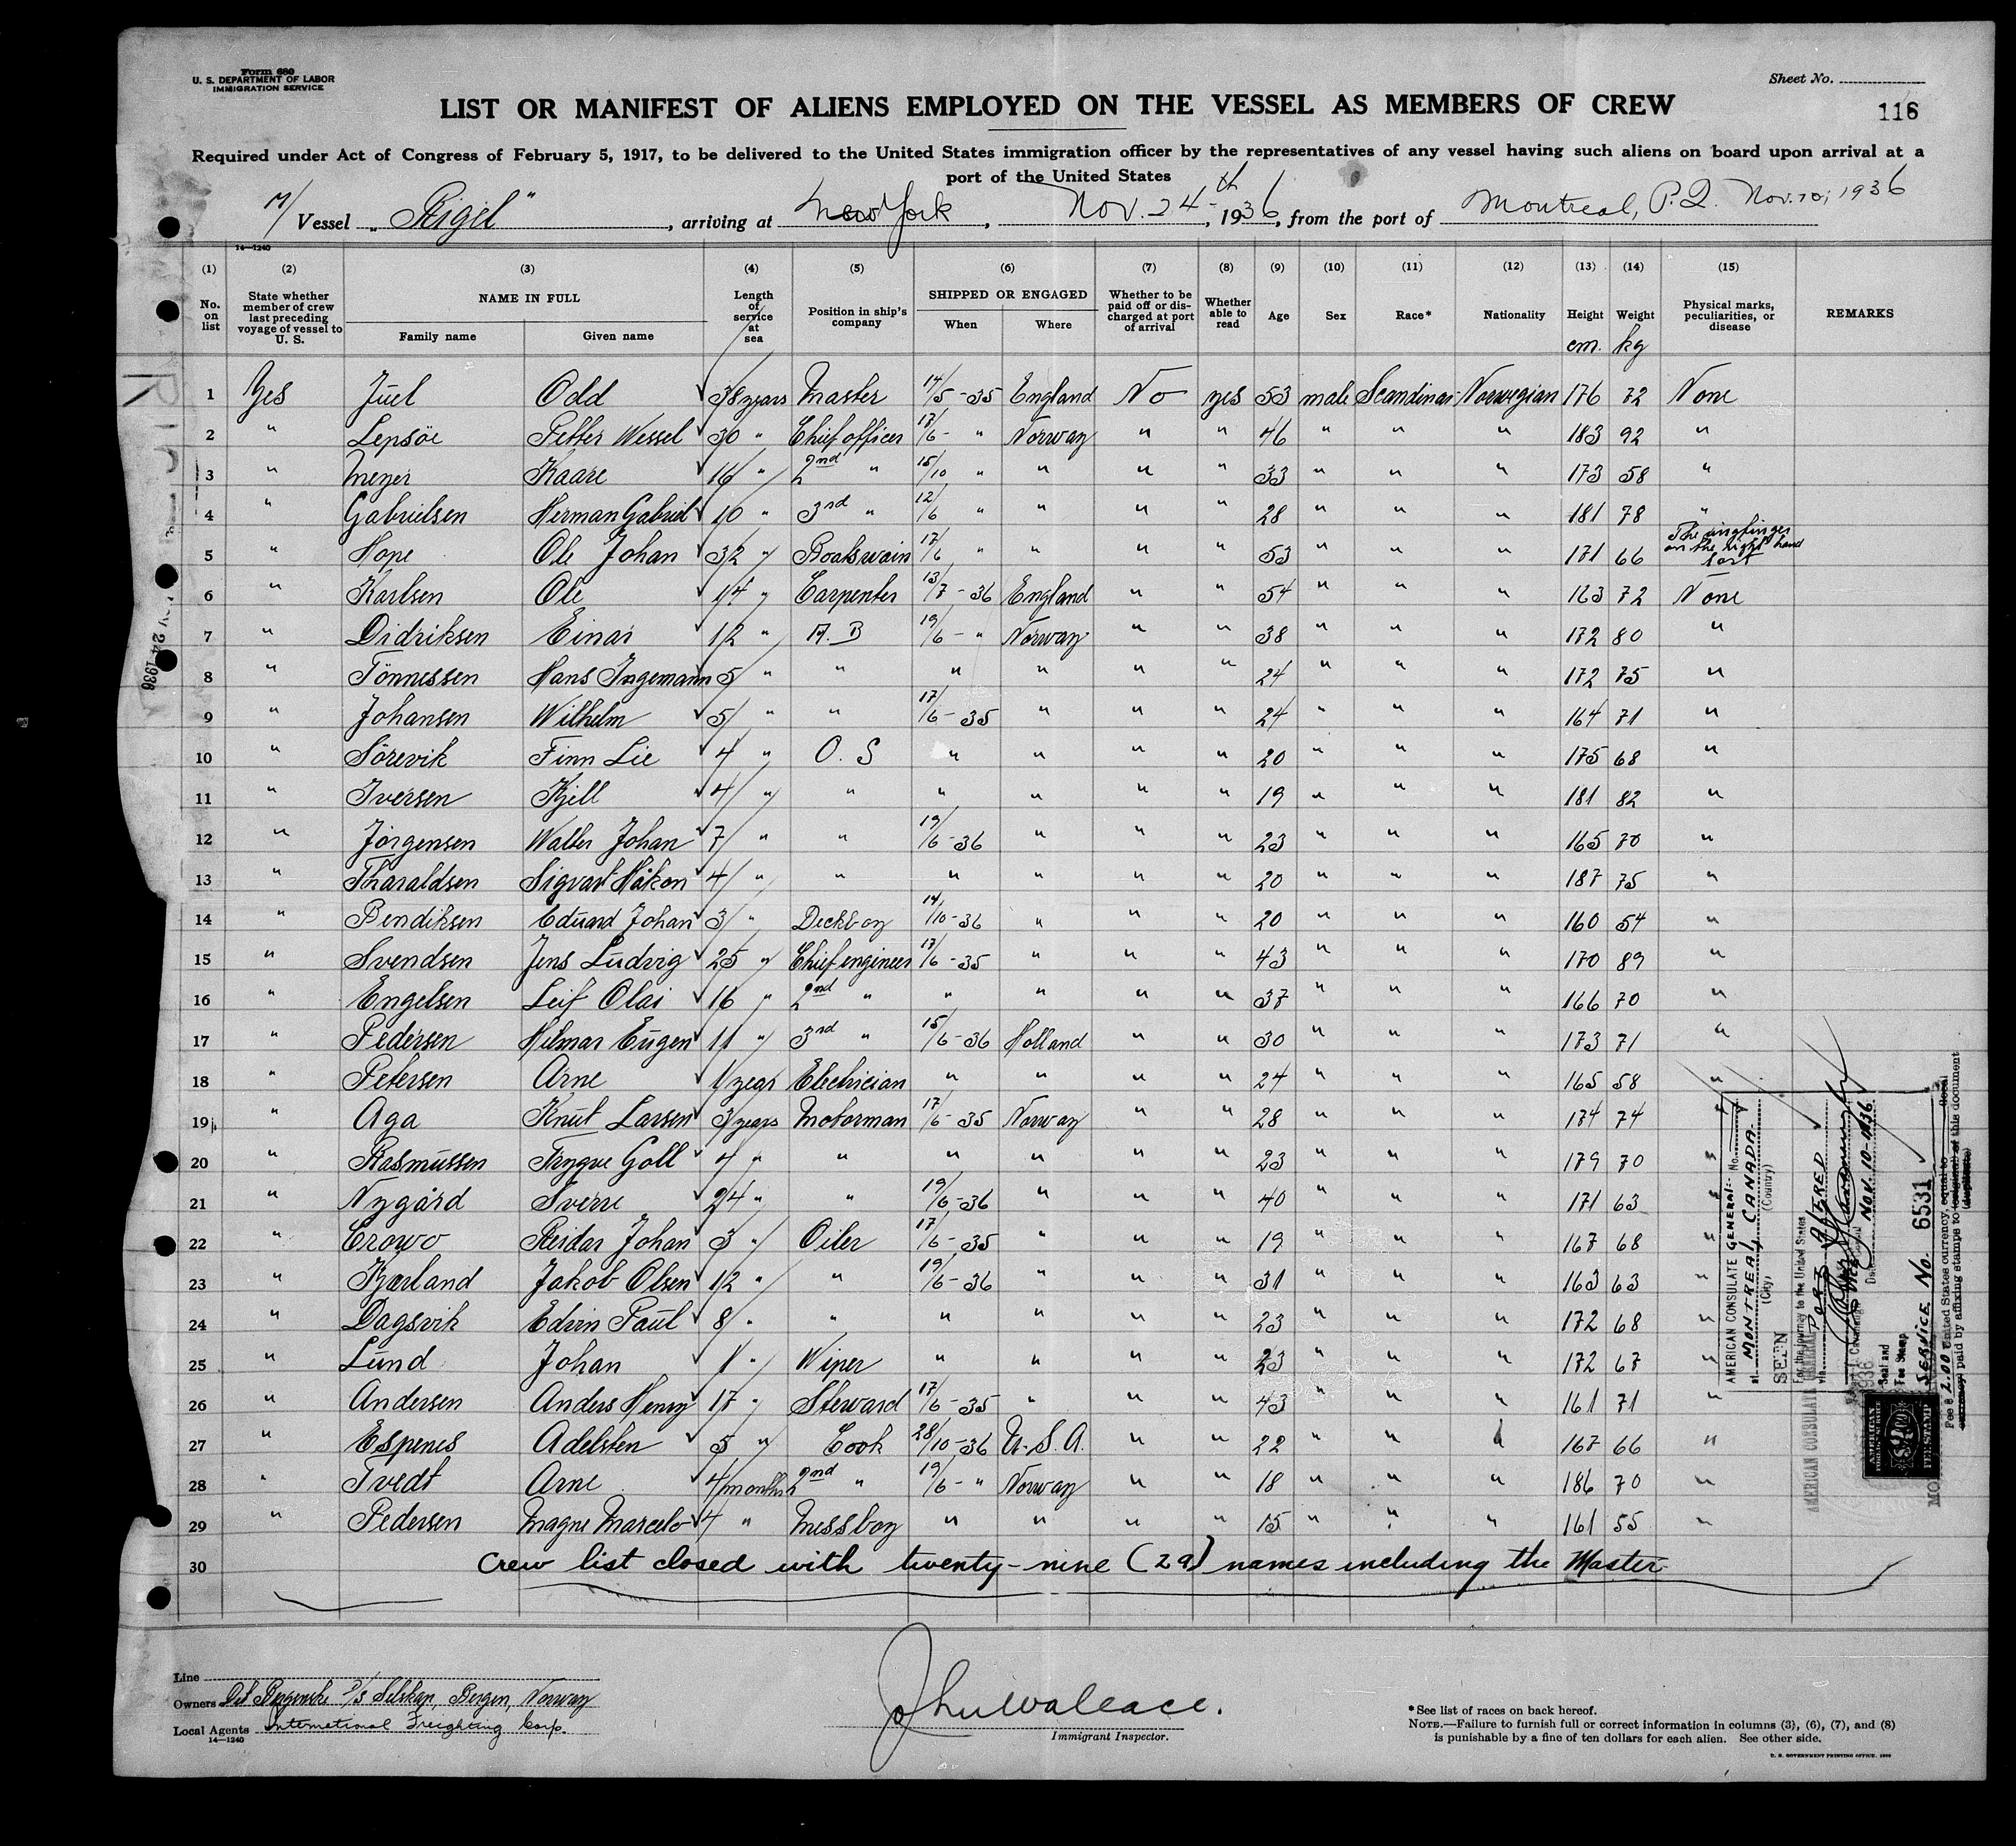 Form 680
U. S. DEPARTMENT OF LABOR
IMMIGRATION SERVICE
Sheet No.
116
LIST OR MANIFEST OF ALIENS EMPLOYED ON THE VESSEL AS MEMBERS OF CREW
Required under Act of Congress of February 5, 1917, to be delivered to the United States immigration officer by the representatives of any vessel having such aliens on board upon arrival at a
port of the United States
M/ Vessel „Rigel", arriving at New York, Nov. 24th, 1936, from the port of Montreal, P.Q. Nov. 10, 1936
14—1240
(1) (2) (3) (4) (5) (6) (7) (8) (9) (10) (11) (12) (13) (14) (15)
No. on list
State whether member of crew last preceding voyage of vessel to U. S.
NAME IN FULL
Family name Given name
Length of service at sea
Position in ship's company
SHIPPED OR ENGAGED
When Where
Whether to be paid off or discharged at port of arrival
Whether able to read
Age Sex Race* Nationality Height Weight
cm. kg
Physical marks, peculiarities, or disease
REMARKS
1 Yes Juel Odd 38 years Master 14/5-35 England No yes 53 male Scandinav Norwegian 176 72 None
2 " Lepsöe Petter Wessel 30 " Chief officer 17/6- " Norway " " 46 " " " 183 92 "
3 " Meyer Kaare 16 " 2nd " 15/10 " " " " 33 " " " 173 58 "
4 " Gabrielsen Herman Gabriel 10 " 3rd " 12/6 " " " " 28 " " " 181 78 "
5 " Hope Ole Johan 32 " Boatswain 17/6 " " " " 53 " " " 171 66 The ringfinger on the right hand lost
6 " Karlsen Ole 14 " Carpenter 13/7-36 England " " 54 " " " 163 72 None
7 " Didriksen Einar 12 " A. B 19/6- " Norway " " 38 " " " 172 80 "
8 " Tönnessen Hans Ingemann 5 " " " " " " 24 " " " 172 75 "
9 " Johansen Wilhelm 5 " " 17/6-35 " " " 24 " " " 164 71 "
10 " Sörevik Finn Lie 4 " O. S " " " " 20 " " " 175 68 "
11 " Iversen Kjell 4 " " " " " " 19 " " " 181 82 "
12 " Jörgensen Walter Johan 7 " " 19/6-36 " " " 23 " " " 165 70 "
13 " Tharaldsen Sigvart Håkon 4 " " " " " " 20 " " " 187 75 "
14 " Bendiksen Edvard Johan 3 " Deckboy 14/10-36 " " " 20 " " " 160 54 "
15 " Svendsen Jens Ludvig 25 " Chief engineer 17/6-35 " " " 43 " " " 170 89 "
16 " Engelsen Leif Olai 16 " 2nd " " " " " 37 " " " 166 70 "
17 " Pedersen Hilmar Eugen 11 " 3rd " 15/6-36 Holland " " 30 " " " 173 71 "
18 " Petersen Arne 1 year Electrician " " " " 24 " " " 165 58 "
19 " Aga Knut Larsen 3 years Motorman 17/6-35 Norway " " 28 " " " 174 74 "
20 " Rasmussen Trygve Goll 4 " " " " " " 23 " " " 179 70 "
21 " Nygård Sverre 24 " " 19/6-36 " " " 40 " " " 171 63 "
22 " Crowo Reidar Johan 3 " Oiler 17/6-35 " " " 19 " " " 167 68 "
23 " Kjærland Jakob Olsen 12 " " 19/6-36 " " " 31 " " " 163 63 "
24 " Dagsvik Edvin Paul 8 " " " " " " 23 " " " 172 68 "
25 " Lund Johan 1 " Wiper " " " " 23 " " " 172 67 "
26 " Andersen Anders Henry 17 " Steward 17/6-35 " " " 43 " " " 161 71 "
27 " Espenes Adelsten 5 " Cook 28/10-36 U. S. A. " " 22 " " " 167 66 "
28 " Tvedt Arne 4 months 2nd " 19/6- " Norway " " 18 " " " 186 70 "
29 " Pedersen Magne Marcelo 4 " Messboy " " " " 15 " " " 161 55 "
30 Crew list closed with twenty-nine (29) names including the Master
AMERICAN CONSULATE GENERAL No.
at MONTREAL, CANADA.
(City) (Country)
SEEN
For the journey to the United States
via PORTS ALTERED
Date NOV. 10 1936
Seal and
Fee Stamp
SERVICE No. 6531
Fee $ 2.00 United States currency, equal to local
currency paid by affixing stamps to (original) of this document
(duplicate)
AMERICAN CONSULATE GENERAL
AMERICAN FOREIGN SERVICE
$2
FEE STAMP
Line
Owners Det Bergenske D/S Selskap, Bergen, Norway
Local Agents International Freighting Corp.
14—1240
John Wallace.
Immigrant Inspector.
*See list of races on back hereof.
NOTE.—Failure to furnish full or correct information in columns (3), (6), (7), and (8)
is punishable by a fine of ten dollars for each alien. See other side.
U. S. GOVERNMENT PRINTING OFFICE
24 1936